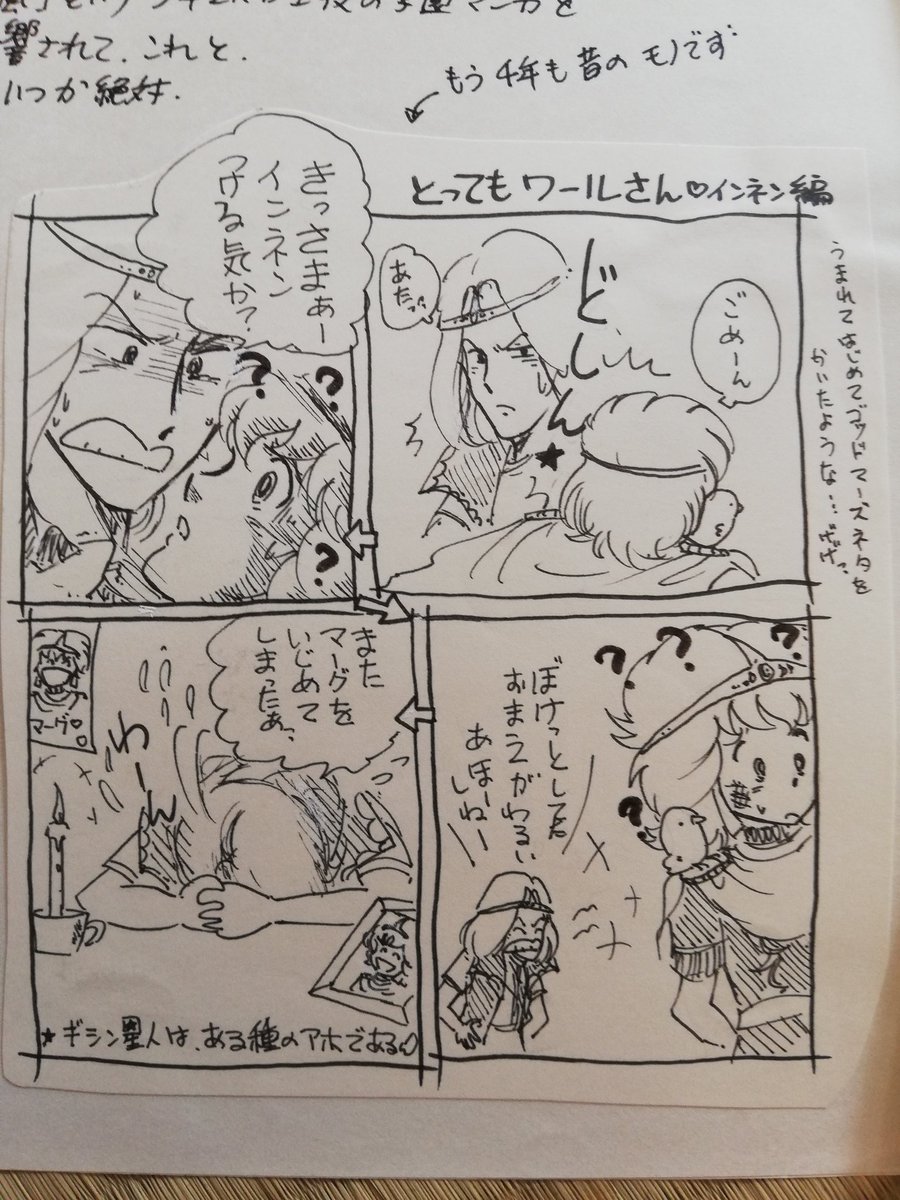 響されて、これと、
いつか絶対.
もう4年も昔のモノです
とってもワールさん♡インネン編
うまれてはじめてゴッドマーズネタを
かいたような…げげっ
ごめーん
どしーん★
あたっ
きっさまぁー
インネン
つける気か?
? ? ?
? ? ? ?
ぼけっとしてる
おまえがわるい
あほーっ
しねー
また
マーグを
いじめて
しまったあっ
わーん
マーグ♡
★ギシン星人は、ある種のアホである♡